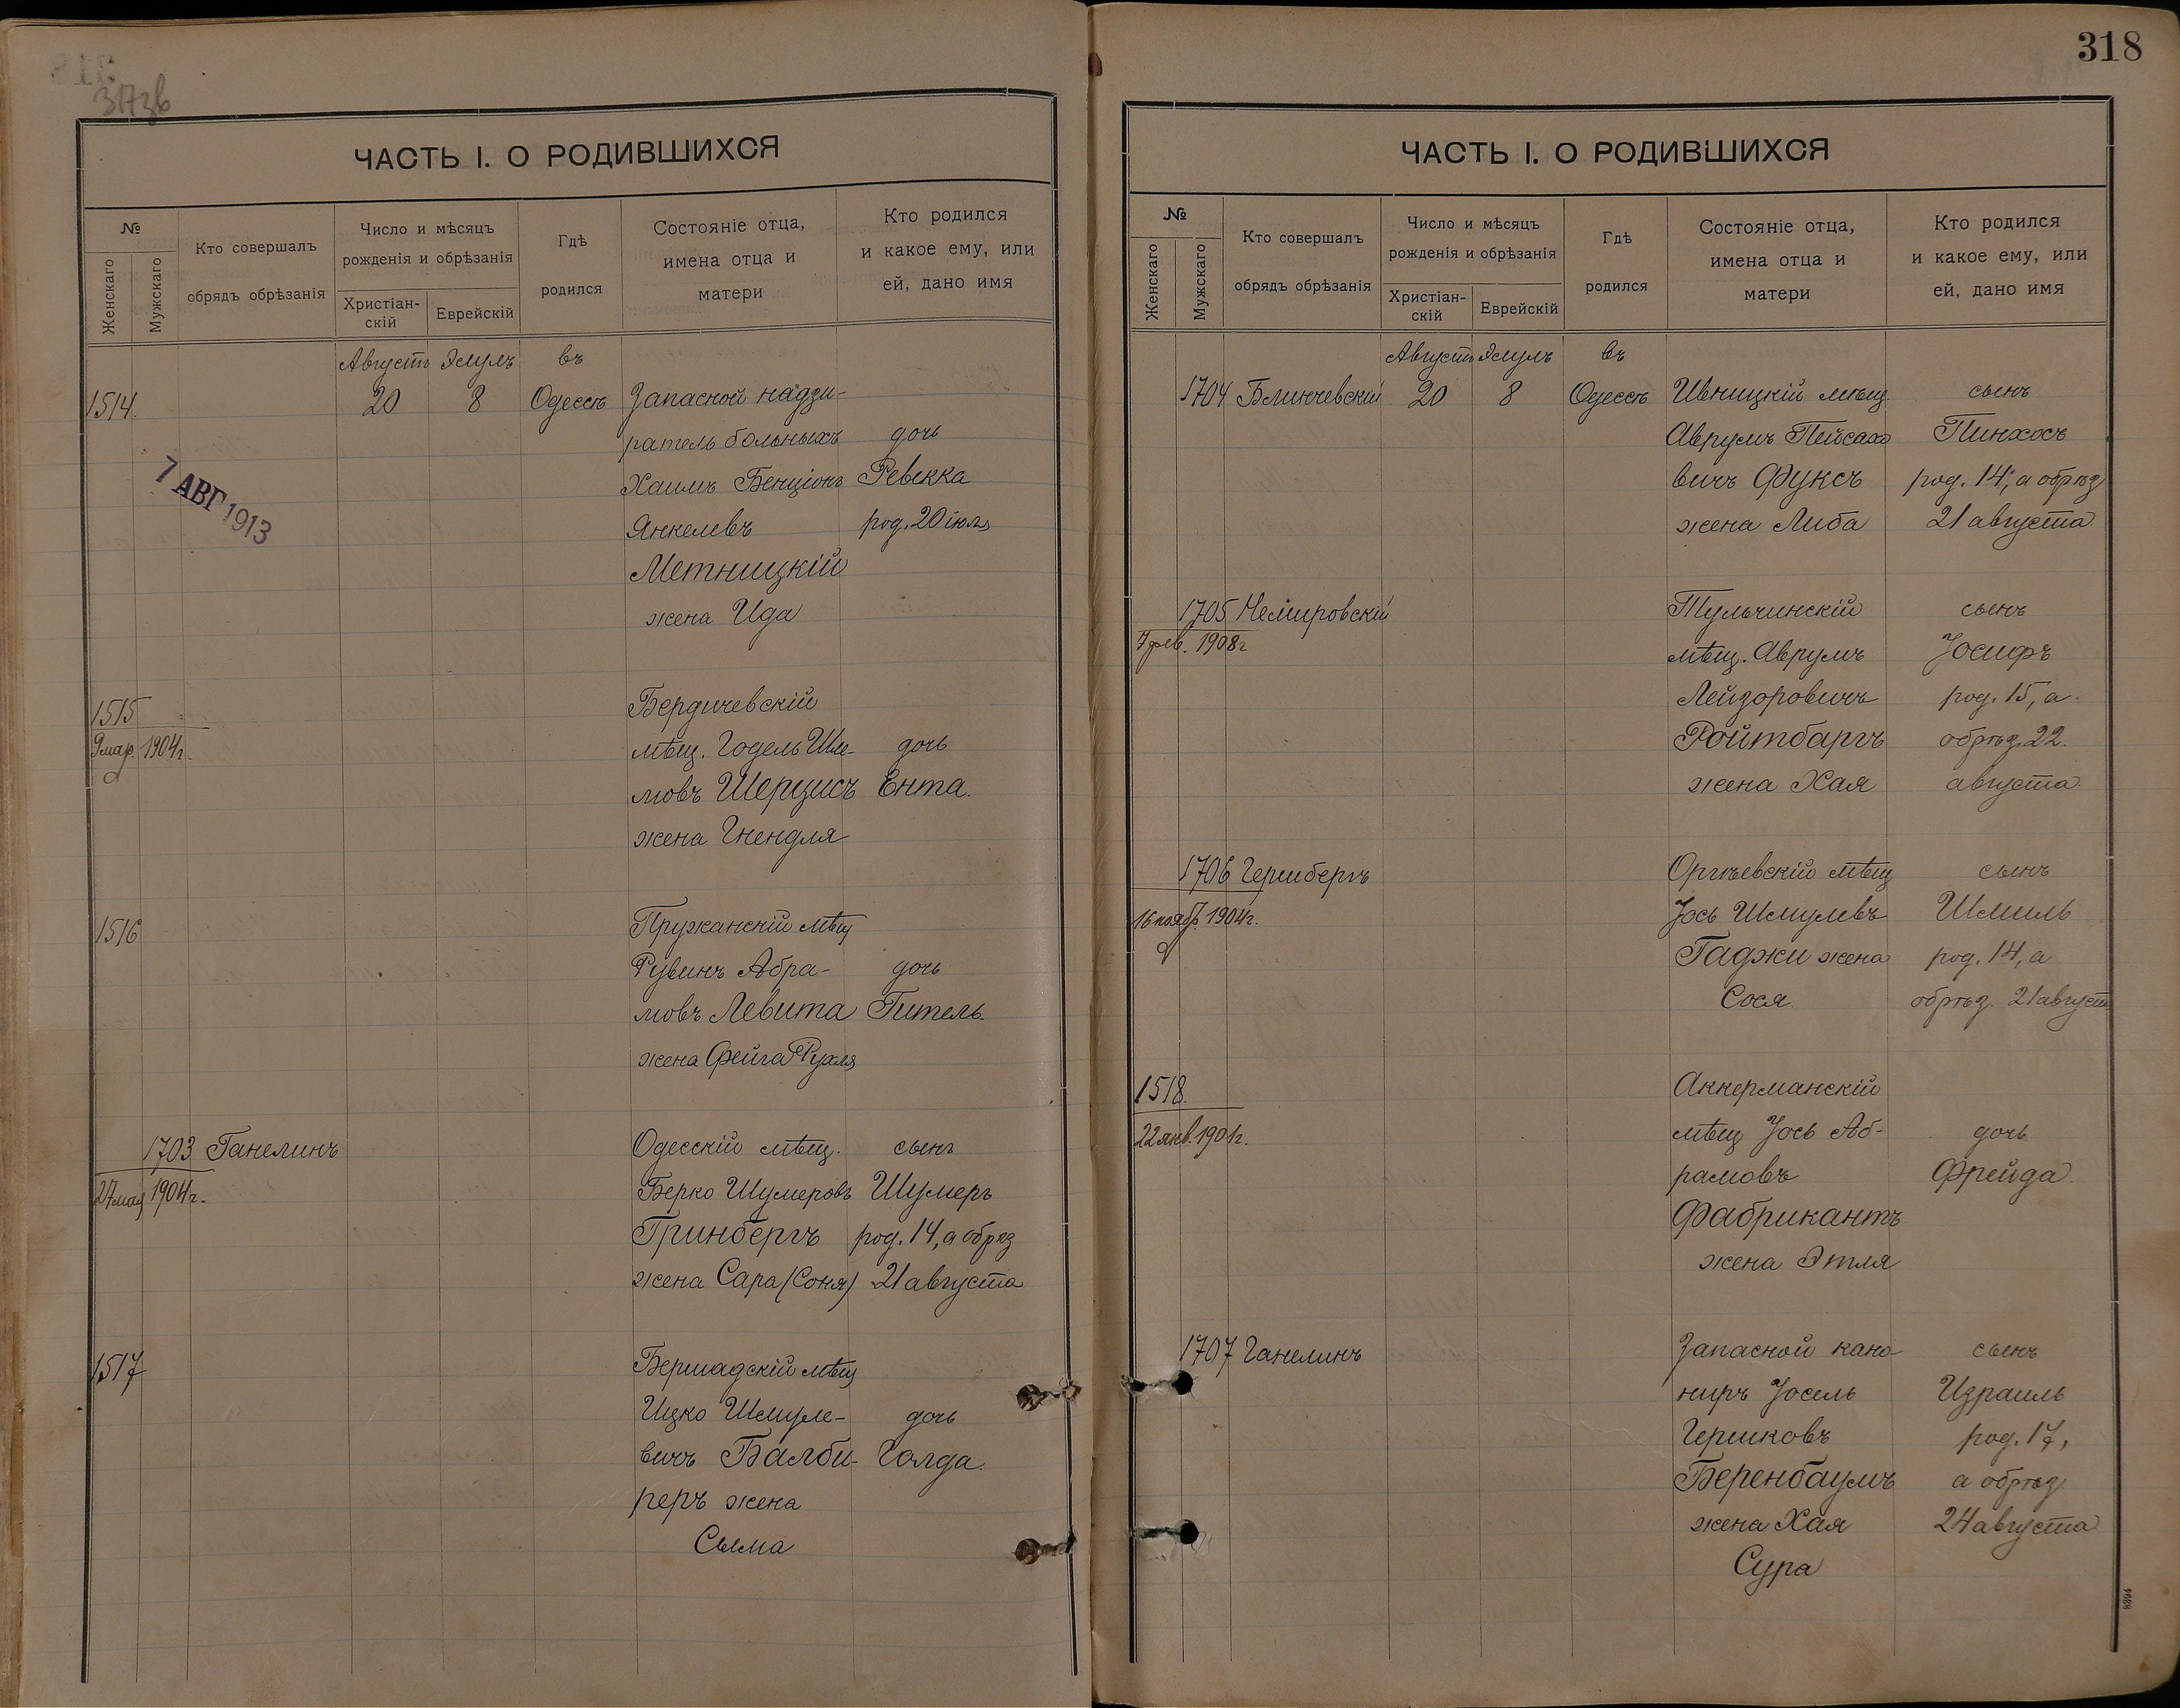 317зв
ЧАСТЬ I. О РОДИВШИХСЯ
№
Женскаго
Мужскаго
Кто совершалъ
обрядъ обрѣзанія
Число и мѣсяцъ
рожденія и обрѣзанія
Христіан-
скій
Еврейскій
Гдѣ
родился
Состояніе отца,
имена отца и
матери
Кто родился
и какое ему, или
ей, дано имя
Августъ Элулъ въ
1514. 20 8 Одессѣ Запасной надзи-
ратель больныхъ дочь
Хаимъ Бенціонъ Ревекка
Янкелевъ род. 20 іюля
Метницкій
жена Ида
7 АВГ 1913
1515 Бердичевскій
9 мар. 1904г. мѣщ. Годель Шле- дочь
мовъ Шерцисъ Ента.
жена Гнендля
1516 Пружанскій мѣщ
Рувинъ Абра- дочь
мовъ Левита Гитель.
жена Фейга Рухля
1703 Ганелинъ Одесскій мѣщ. сынъ
27 мая 1904г. Берко Шумеровъ Шумеръ
Гринбергъ род. 14, а обрѣз
жена Сара (Соня) 21 августа
1517 Бершадскій мѣщ
Ицко Шмуле- дочь
вичъ Балби- Голда.
реръ жена
Сыма
318
ЧАСТЬ I. О РОДИВШИХСЯ
№
Женскаго
Мужскаго
Кто совершалъ
обрядъ обрѣзанія
Число и мѣсяцъ
рожденія и обрѣзанія
Христіан-
скій
Еврейскій
Гдѣ
родился
Состояніе отца,
имена отца и
матери
Кто родился
и какое ему, или
ей, дано имя
Августъ Элулъ въ
1704 Блинчевскій 20 8 Одессѣ Ивницкій мѣщ. сынъ
Аврумъ Пейсахо Пинхосъ
вичъ Фуксъ род. 14, а обрѣз
жена Либа 21 августа
1705 Немировскій Тульчинскій сынъ
7 фев. 1908г мѣщ. Аврумъ Іосифъ
Лейзоровичъ род. 15, а
Ройтбаргъ обрѣз. 22.
жена Хая августа.
1706 Гершбергъ Оргѣевскій мѣщ сынъ
16 ноябр. 1904г. Іось Шмулевъ Шмиль
Гаджи жена род. 14, а
Сося. обрѣз. 21 август
1518. Аккерманскій
22 янв. 1901г. мѣщ Іось Аб- дочь
рамовъ Фрейда.
Фабрикантъ
жена Этля
1707 Ганелинъ Запасной кано- сынъ
ниръ Іосель Израиль
Гершковъ род. 17,
Беренбаумъ а обрѣз
жена Хая 24 августа
Сура